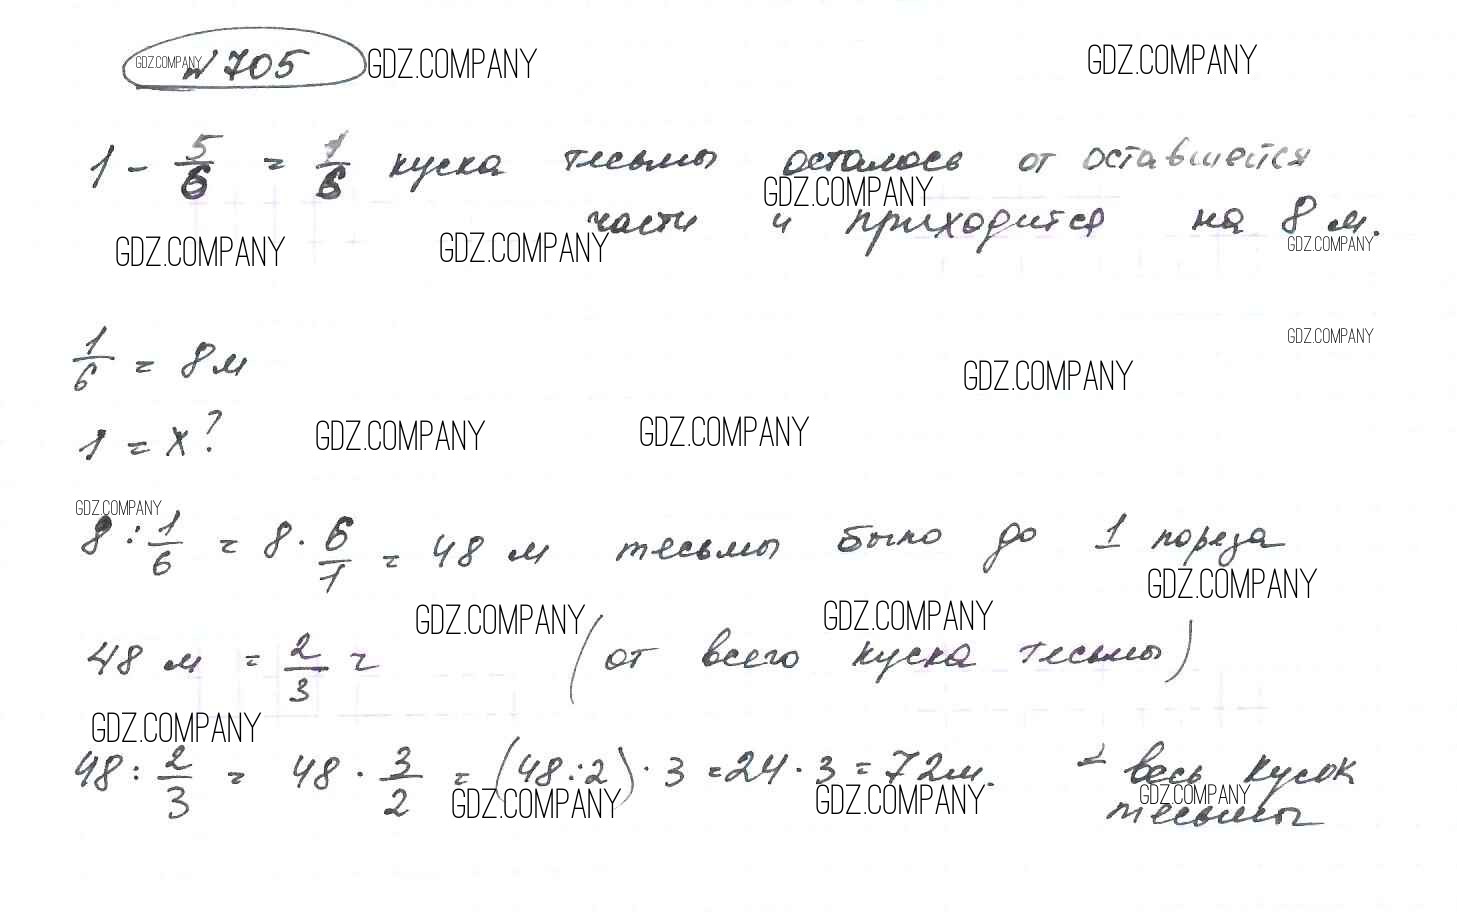 GDZ.COMPANY № 705 GDZ.COMPANY GDZ.COMPANY
1 - 5/6 = 1/6 куска тесьмы осталось от оставшейся
GDZ.COMPANY
части и приходится на 8 м.
GDZ.COMPANY GDZ.COMPANY GDZ.COMPANY
GDZ.COMPANY
1/6 = 8 м
GDZ.COMPANY
1 = x?
GDZ.COMPANY GDZ.COMPANY
GDZ.COMPANY
8 : 1/6 = 8 · 6/1 = 48 м тесьмы было до 1 пореза
GDZ.COMPANY
GDZ.COMPANY GDZ.COMPANY
48 м = 2/3 (от всего куска тесьмы)
GDZ.COMPANY
48 : 2/3 = 48 · 3/2 = (48:2) · 3 = 24 · 3 = 72 м. - весь кусок
GDZ.COMPANY GDZ.COMPANY GDZ.COMPANY
тесьмы